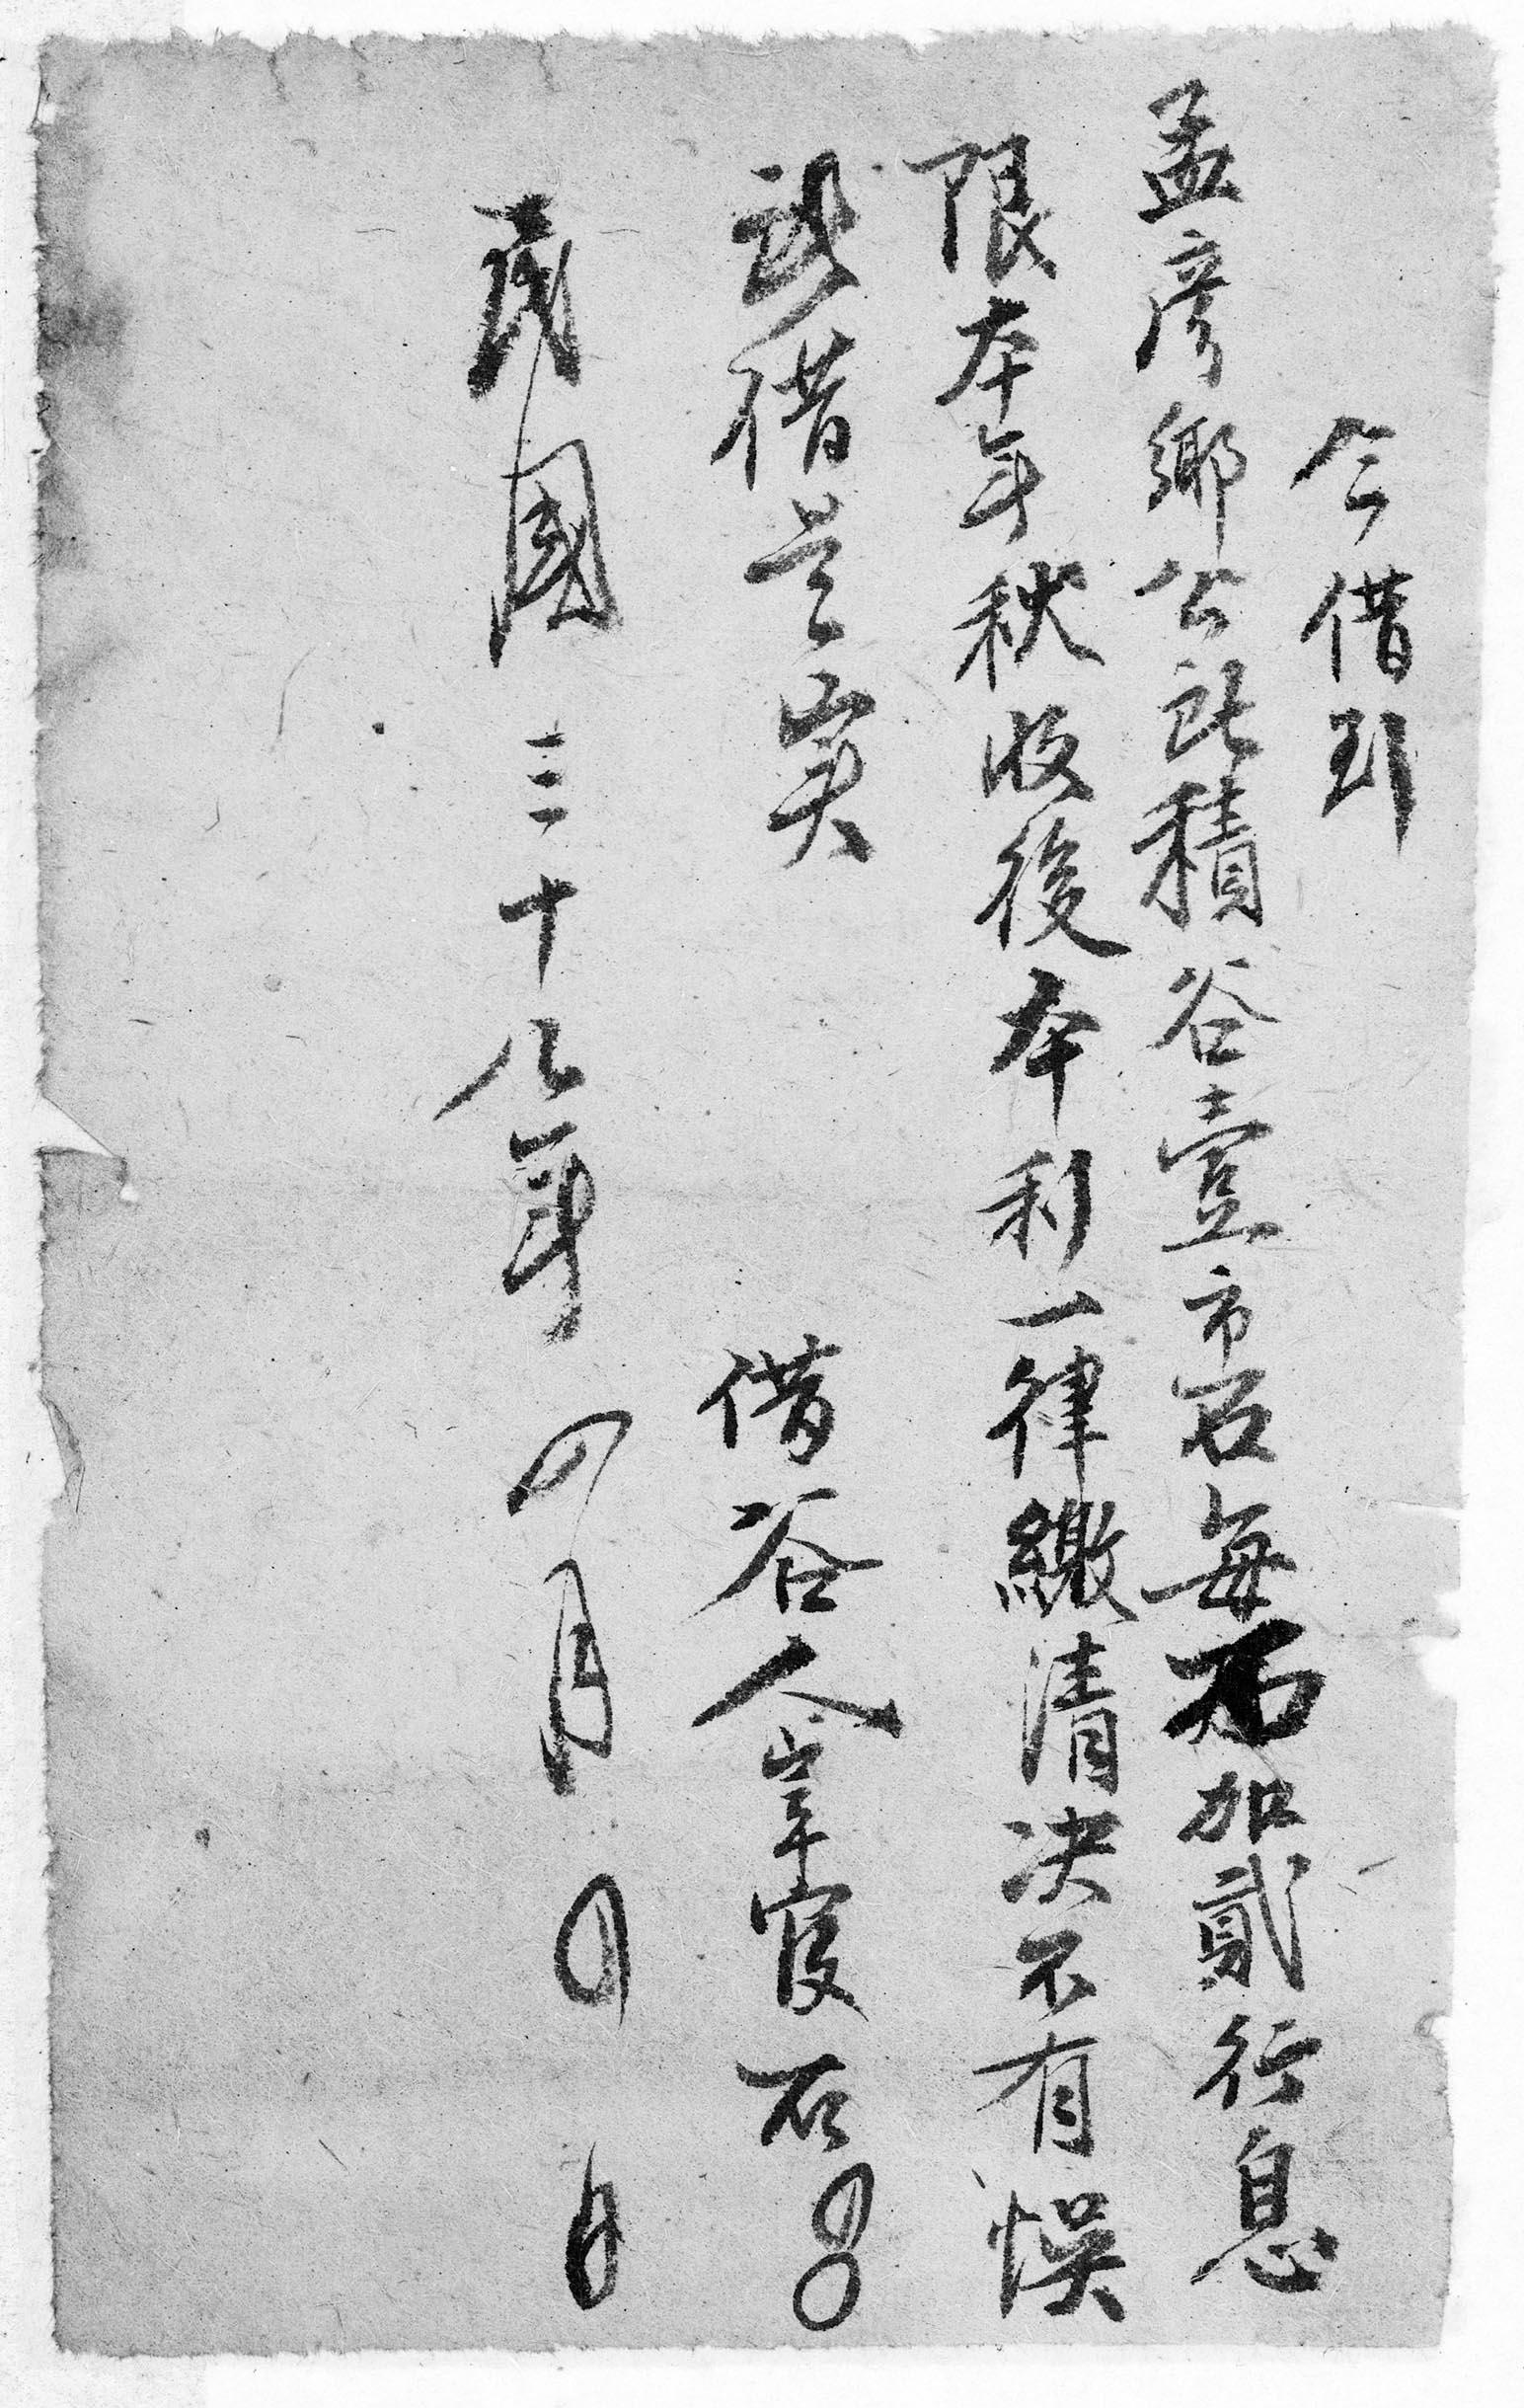 今借到
孟彦鄉公所積谷壹市石每石加貳行息
限本年秋收後本利一律繳清决不有悮
所借是实
借谷人 石
民國三十八年四月 日